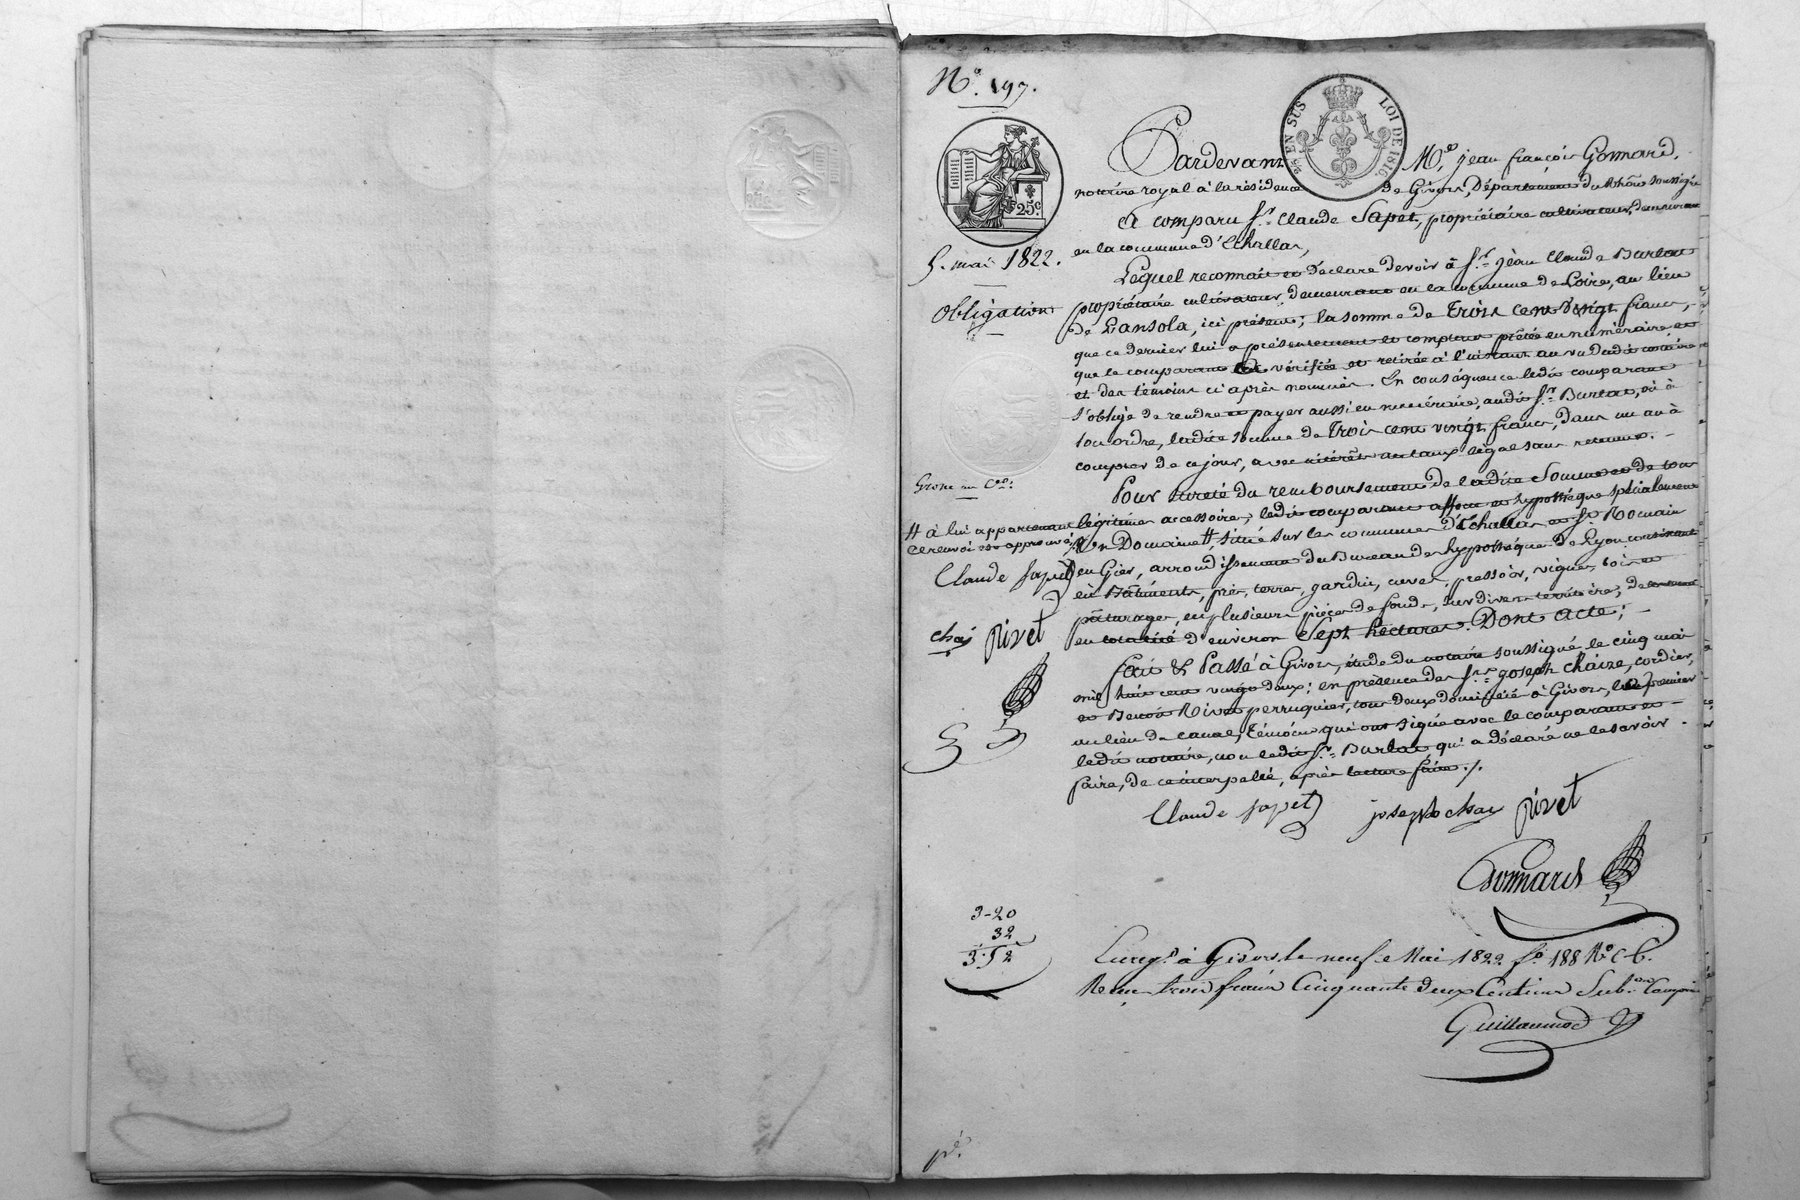 N.º 197.
EN SUS LOI DE 1816.
25.c
5. mai 1822.
Obligation
Pardevant M.e jean françois Gomard,
notaire royal à la résidence de Givors, Département du Rhône soussigné
A comparu S.r Claude Sapet, propriétaire cultivateur, demeurant
en la commune d'Echallas,
Lequel reconnait et Déclare devoir à S.r jean Claude Burlat
propriétaire cultivateur, demeurant en la commune de Loire, au lieu
de Lansola, ici présent; la somme de Trois cent vingt francs,
que ce dernier lui a présentement et comptant prêtée en numéraire, et
que le comparant a vérifiée et retirée à l'instant au vu dudit notaire
et des témoins ci après nommés. En conséquence ledit comparant
s'oblige de rendre et payer aussi en numéraire, audit S.r Burlat, où à
son ordre, ladite somme de Trois cent vingt francs, dans un an à
compter de ce jour, avec intérêts au taux légal sans retenue. -
Pour sureté du remboursement de ladite Somme et de tous
légitimes accessoires, ledit comparant affecte et hypothèque spécialement
un Domaine #, situé sur les communes d'Echallas et S.t Romain
en Gier, arrondissement du Bureau des hypothèques de Lyon consistant
en Bâtiments, prés, terres, jardin, cuves, pressoir, vignes, bois et
pâturages, en plusieurs pièces de fonds, sur divers territoires, de contenue
en totalité d'environ Sept hectares. Dont Acte; -
Grosse au C.er
# à lui appartenant
ce renvoi est approuvé
Claude Sapet
chaj Rivet
Fait & Passé à Givors, étude du notaire soussigné, le cinq mai
mil huit cent vingt deux; en présence des S.rs joseph Chaize, cordier,
et Benoit Rivet perruquier, tous deux domiciliés à Givors, le premier
au lieu du canal, témoins qui ont signé avec le comparant et
ledit notaire, non ledit S.r Burlat qui a déclaré ne le savoir
faire, de ce interpellé, après lecture faite ./.
Claude Sapet joseph chaj Rivet
Gomard
3-20
32
3.52
Enreg.é à Givors le neuf Mai 1822 f.o 188 R.o C 6.
Reçu trois francs Cinquante deux Centimes Sub.on Comprise
Guillaumod